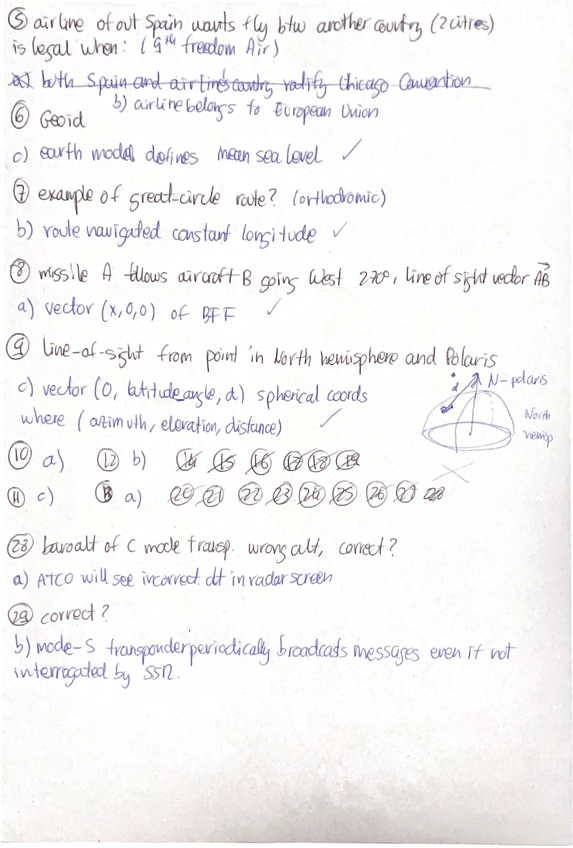 ⑤ airline of out Spain wants fly btw another country (2 cities)
is legal when: (9th freedom Air)
a) both Spain and airline's country ratify Chicago Convention
b) airline belongs to European Union
⑥ Geoid
c) earth model defines mean sea level ✓
⑦ example of great-circle route? (orthodromic)
b) route navigated constant longitude ✓
⑧ missile A follows aircraft B going West 270°, line of sight vector AB
a) vector (x,0,0) of BFF ✓
⑨ line-of-sight from point in North hemisphere and Polaris
c) vector (0, latitude angle, d) spherical coords
where (azimuth, elevation, distance) ✓
d N-polaris
North
hemisp
⑩ a) ⑫ b) 14 15 16 17 18 19
⑪ c) ⑬ a) 20 21 22 23 24 25 26 27 28
㉘ baroalt of C mode transp. wrong alt, correct?
a) ATCO will see incorrect dt in radar screen
㉙ correct?
b) mode-S transponder periodically broadcasts messages even if not
interrogated by SSR.